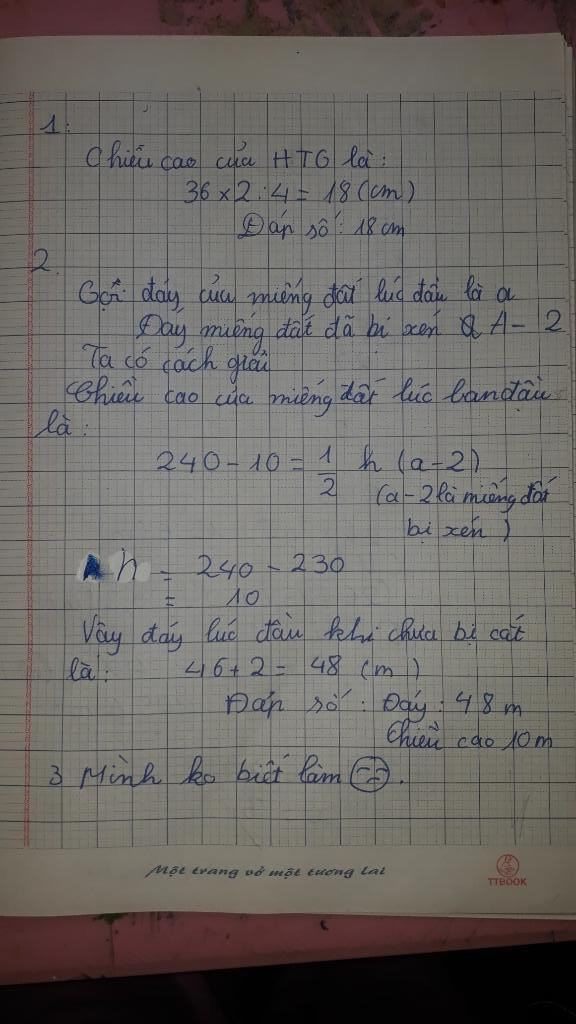 1:
Chiều cao của HTG là:
36 × 2 : 4 = 18 (cm)
Đáp số: 18 cm
2.
Gọi đáy của miếng đất lúc đầu là a
Đáy miếng đất đã bị xén A - 2
Ta có cách giải
Chiều cao của miếng đất lúc ban đầu
là:
240 - 10 = 1/2 h (a - 2)
(a - 2 là miếng đất
bị xén)
h = 240 - 230
= 10
Vậy đáy lúc đầu khi chưa bị cắt
là: 46 + 2 = 48 (m)
Đáp số: Đáy: 48 m
Chiều cao 10 m
3 Mình ko biết làm.
Một trang vở một tương lai
TTBOOK